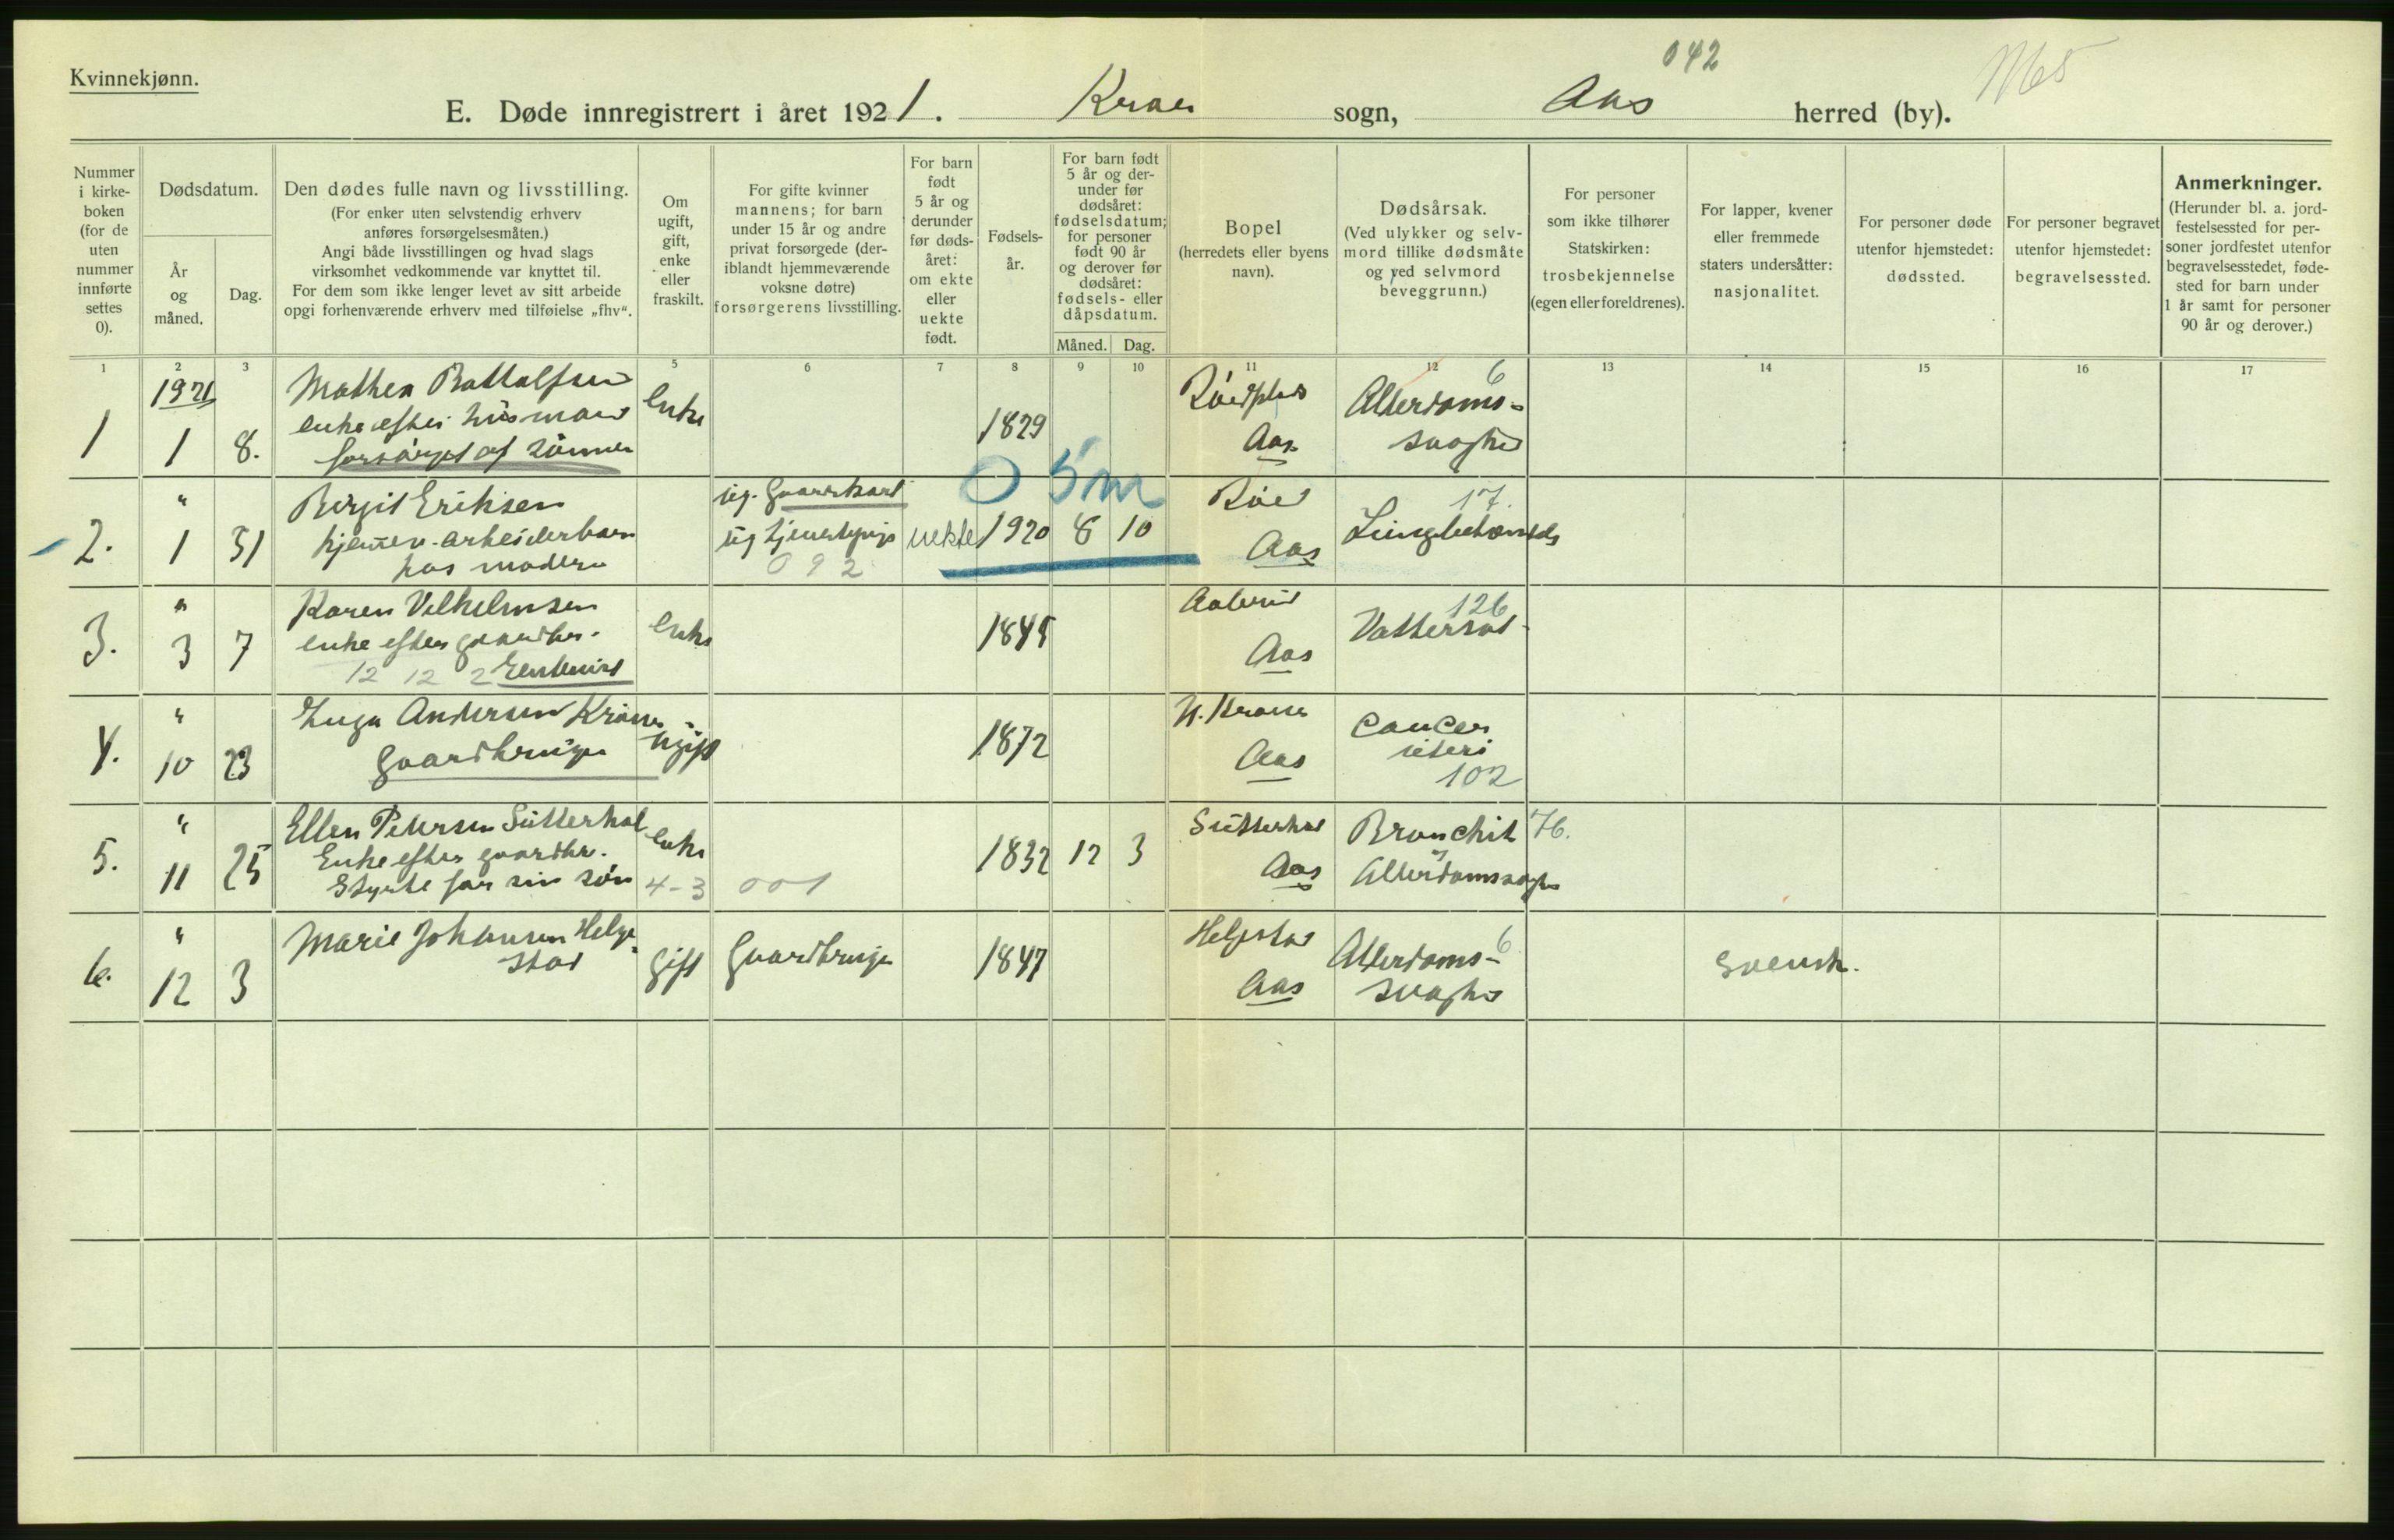 Kvinnekjønn.
042
E. Døde innregistrert i året 1921. Kroer sogn, Aas herred (by).
Nummer i kirke-boken (for de uten nummer innførte settes 0).
Dødsdatum.
År og måned.
Dag.
Den dødes fulle navn og livsstilling.
(For enker uten selvstendig erhverv
anføres forsørgelsesmåten.)
Angi både livsstillingen og hvad slags
virksomhet vedkommende var knyttet til.
For dem som ikke lenger levet av sitt arbeide
opgi forhenværende erhverv med tilføielse „fhv“.
Om ugift, gift, enke eller fraskilt.
For gifte kvinner
mannens; for barn
under 15 år og andre
privat forsørgede (der-
iblandt hjemmeværende
voksne døtre)
forsørgerens livsstilling.
For barn født 5 år og derunder før døds-året: om ekte eller uekte født.
Fødsels-år.
For barn født
5 år og der-
under før
dødsåret:
fødselsdatum;
for personer
født 90 år
og derover før
dødsåret:
fødsels- eller
dåpsdatum.
Måned. Dag.
Bopel
(herredets eller byens
navn).
Dødsårsak.
(Ved ulykker og selv-
mord tillike dødsmåte
og ved selvmord
beveggrunn.)
For personer
som ikke tilhører
Statskirken:
trosbekjennelse
(egen eller foreldrenes).
For lapper, kvener
eller fremmede
staters undersåtter:
nasjonalitet.
For personer døde
utenfor hjemstedet:
dødssted.
For personer begravet
utenfor hjemstedet:
begravelsessted.
Anmerkninger.
(Herunder bl. a. jord-
festelsessted for per-
soner jordfestet utenfor
begravelsesstedet, føde-
sted for barn under
1 år samt for personer
90 år og derover.)
1 2 3 5 6 7 8 9 10 11 12 13 14 15 16 17
1921
1 1 8. Mathea
enke efter husmand
forsørget af sönner
enke 1829
Aas
Alderdoms-
svaghed
6
0 5m
2. " 1 31 Birgit Eriksen
hjemmev. arbeiderbarn
hos moderen
ug. Gaardkarl
ug tjenestepige
092
uekte 1920 8 10
Röed
Aas
17.
Lungebetændels
3. " 3 7 Karen Vilhelmsen
enke efter gaardbr.
12 12 2
enke 1845
Aas
126
Vattersot
4. " 10 23 Inga Andersen Kroer
Gaardbruger
ugift 1872
N. Kroer
Aas
Cancer
uteri
102
5. " 11 25 Ellen Petersen Sutterhol
Enke efter gaardbr.
Styrte for sin sön
enke
4-3 001
1832 12 3
Sutterhol
Aas
Bronchit 76.
Alderdomssvagh
6. " 12 3 Marie Johansen Helge-
stad
gift Gaardbruger 1847
Helgestad
Aas
Alderdoms-
svaghed
6
Svensk.